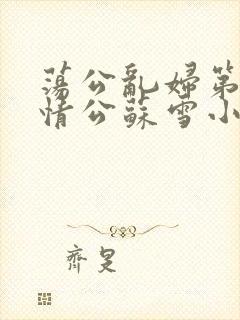 荡公乱婦第
情公蘇雪小
齊旻